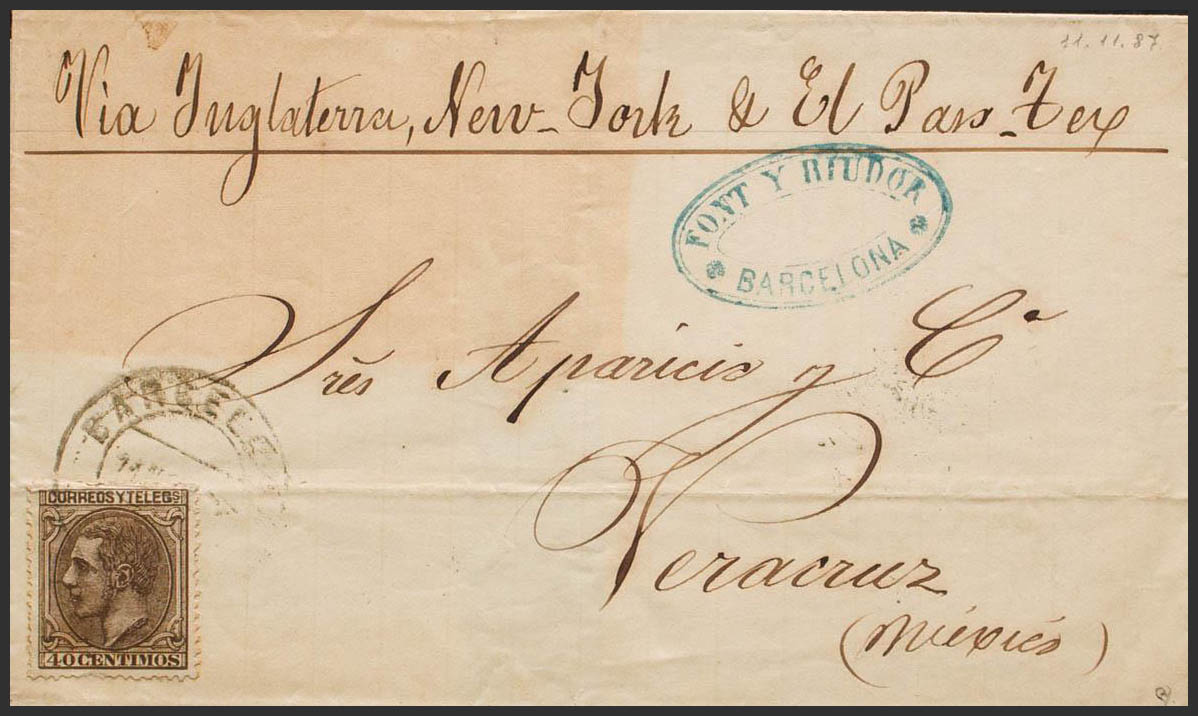 11.11.87
Via Inglaterra, New-York & El Paso-Tex
FONT Y RIUDOR
BARCELONA
Srēs Aparicio y Cª
BARCELO
CORREOS Y TELEGS
Veracruz
40 CENTIMOS
(México)